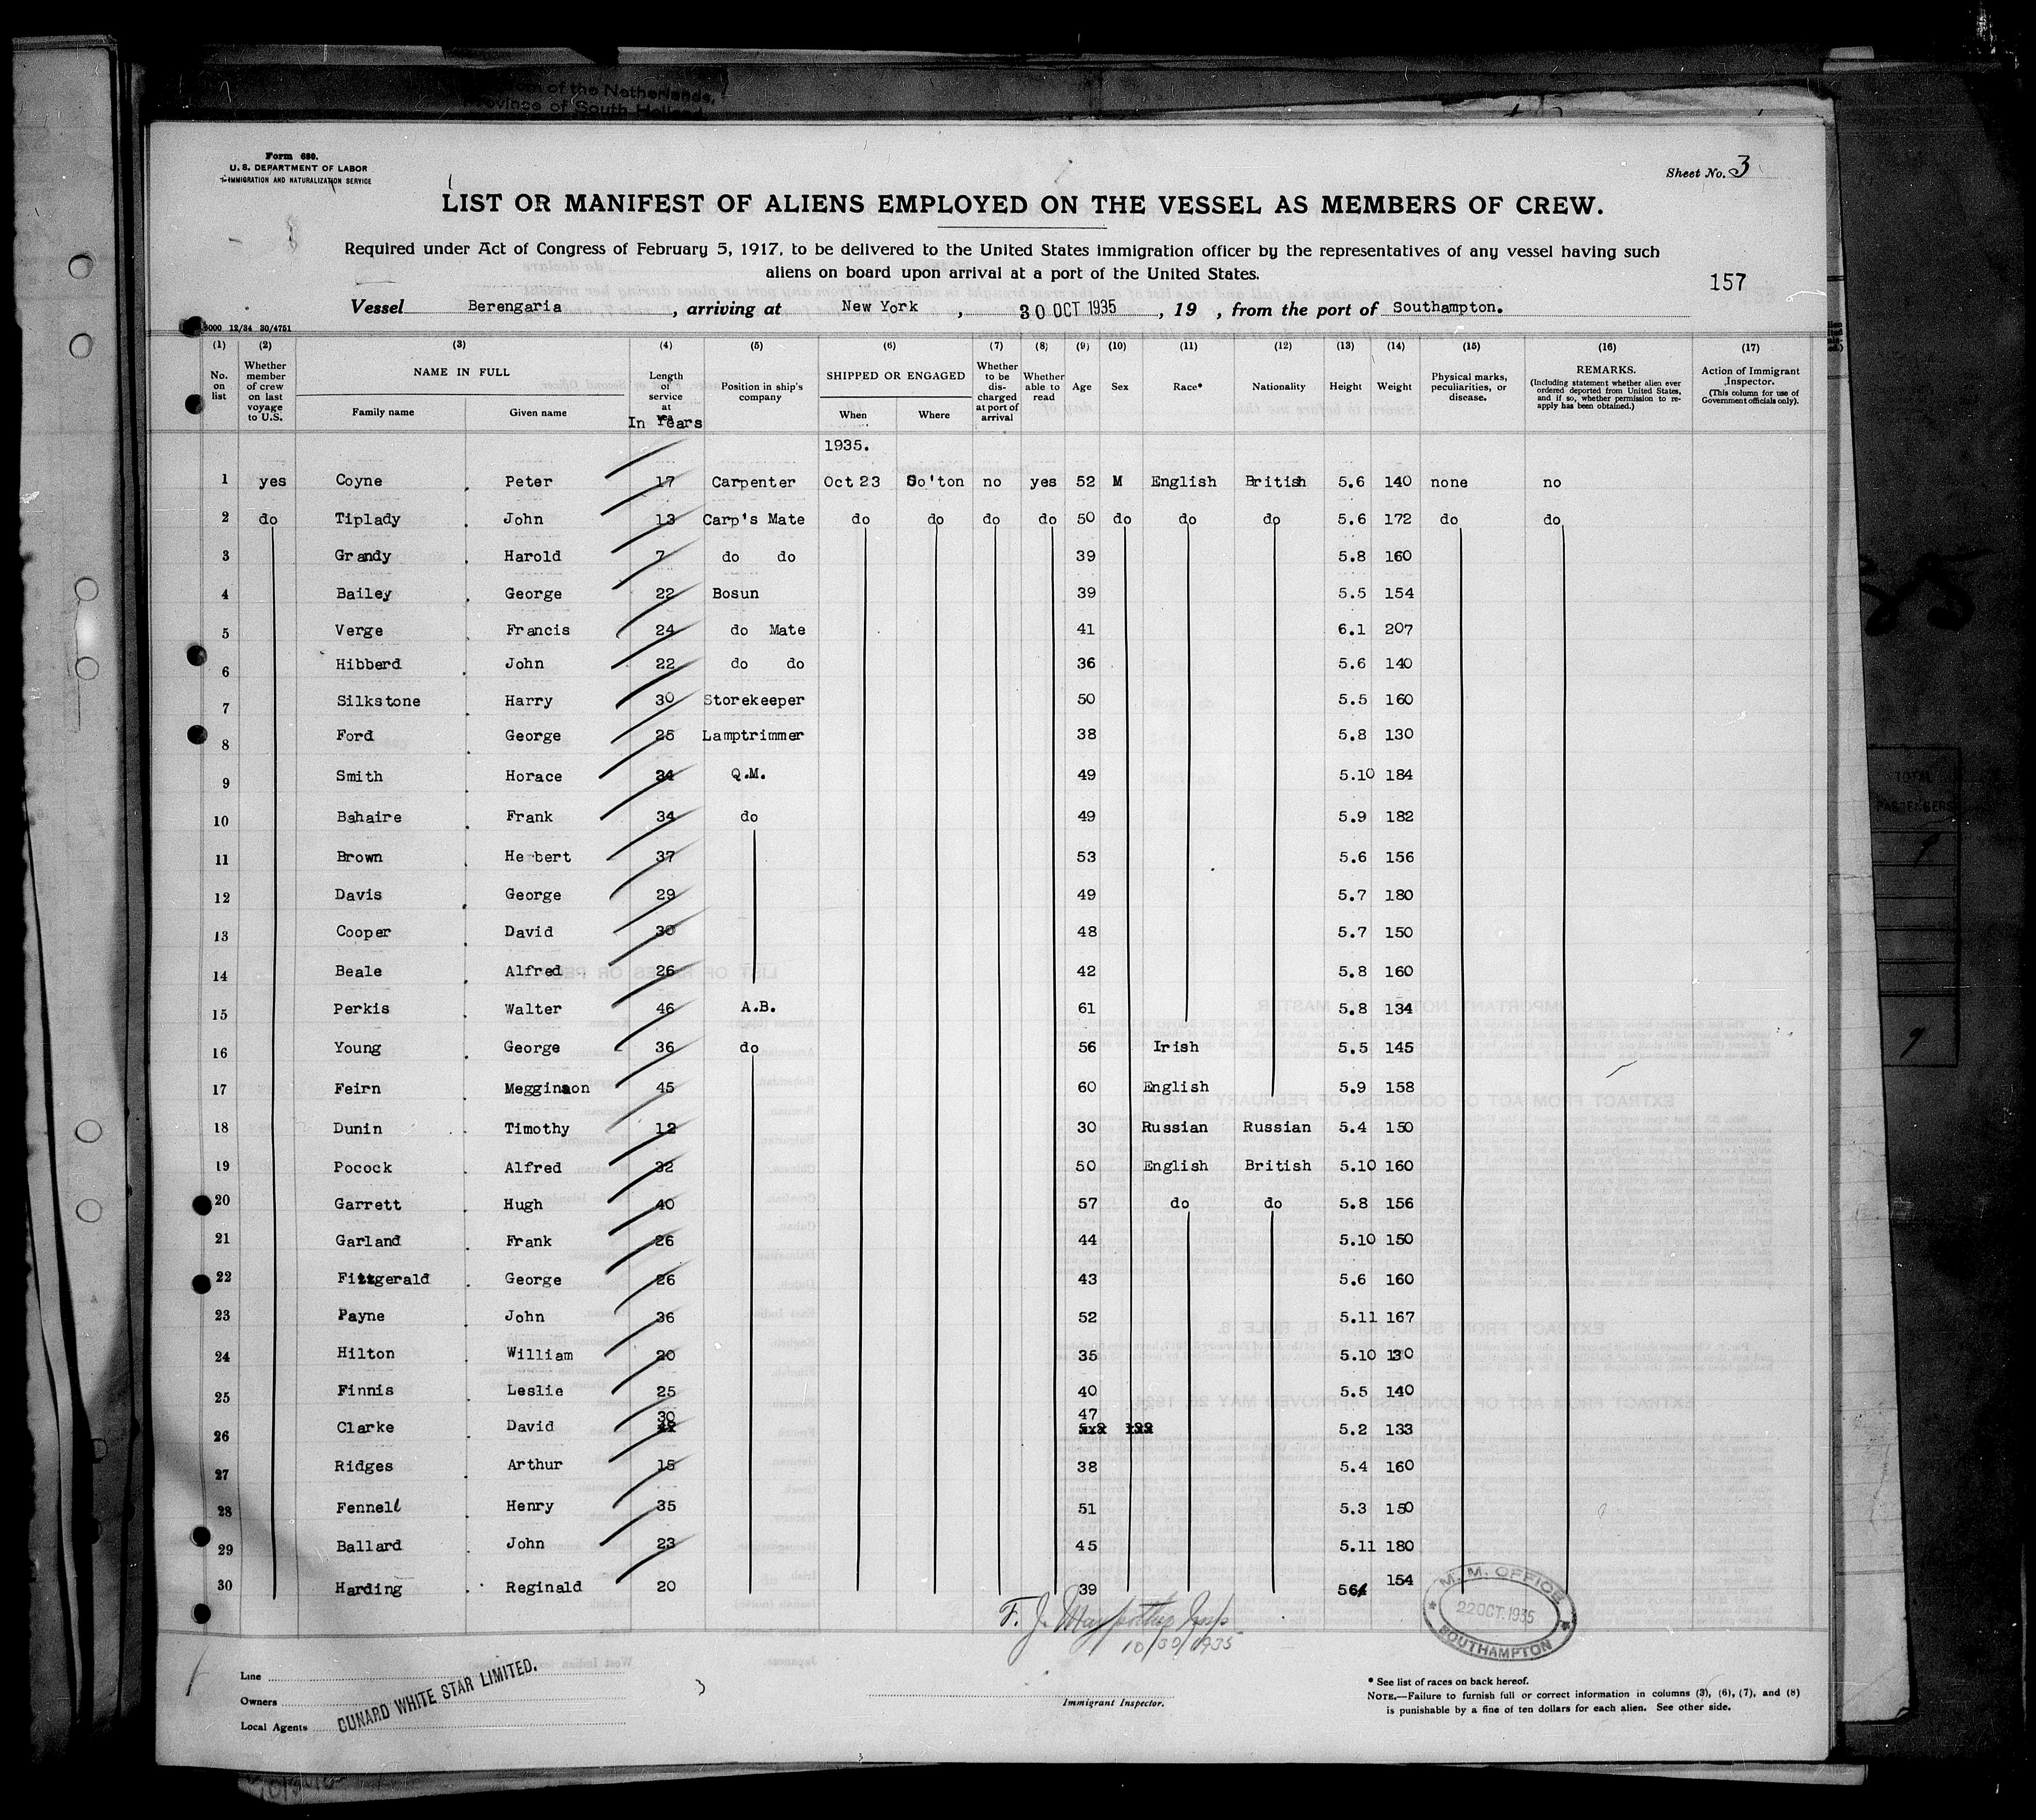 om of the Netherlands,
rovince of South Holland
Form 680.
U. S. DEPARTMENT OF LABOR
IMMIGRATION AND NATURALIZATION SERVICE
Sheet No. 3
LIST OR MANIFEST OF ALIENS EMPLOYED ON THE VESSEL AS MEMBERS OF CREW.
Required under Act of Congress of February 5, 1917, to be delivered to the United States immigration officer by the representatives of any vessel having such
aliens on board upon arrival at a port of the United States.
157
Vessel Berengaria, arriving at New York, 30 OCT 1935, 19 , from the port of Southampton.
5000 12/34 30/4751
(1) (2) (3) (4) (5) (6) (7) (8) (9) (10) (11) (12) (13) (14) (15) (16) (17)
No. on list
Whether member of crew on last voyage to U.S.
NAME IN FULL
Family name
Given name
Length of service at sea
In Years
Position in ship's company
SHIPPED OR ENGAGED
When
Where
Whether to be discharged at port of arrival
Whether able to read
Age
Sex
Race*
Nationality
Height
Weight
Physical marks, peculiarities, or disease.
REMARKS.
(Including statement whether alien ever ordered deported from United States, and if so, whether permission to re-apply has been obtained.)
Action of Immigrant Inspector.
(This column for use of Government officials only).
1935.
1 yes Coyne Peter 17 Carpenter Oct 23 So'ton no yes 52 M English British 5.6 140 none no
2 do Tiplady John 13 Carp's Mate do do do do 50 do do do 5.6 172 do do
3 Grandy Harold 7 do do 39 5.8 160
4 Bailey George 22 Bosun 39 5.5 154
5 Verge Francis 24 do Mate 41 6.1 207
6 Hibberd John 22 do do 36 5.6 140
7 Silkstone Harry 30 Storekeeper 50 5.5 160
8 Ford George 25 Lamptrimmer 38 5.8 130
9 Smith Horace 34 Q.M. 49 5.10 184
10 Bahaire Frank 34 do 49 5.9 182
11 Brown Herbert 37 53 5.6 156
12 Davis George 29 49 5.7 180
13 Cooper David 30 48 5.7 150
14 Beale Alfred 26 42 5.8 160
15 Perkis Walter 46 A.B. 61 5.8 134
16 Young George 36 do 56 Irish 5.5 145
17 Feirn Megginson 45 60 English 5.9 158
18 Dunin Timothy 12 30 Russian Russian 5.4 150
19 Pocock Alfred 32 50 English British 5.10 160
20 Garrett Hugh 40 57 do do 5.8 156
21 Garland Frank 26 44 5.10 150
22 Fitzgerald George 26 43 5.6 160
23 Payne John 36 52 5.11 167
24 Hilton William 20 35 5.10 130
25 Finnis Leslie 25 40 5.5 140
26 Clarke David 30 47 5.2 133
27 Ridges Arthur 15 38 5.4 160
28 Fennell Henry 35 51 5.3 150
29 Ballard John 23 45 5.11 180
30 Harding Reginald 20 39 154
F. J. 10/30/1935
M. M. OFFICE
22 OCT. 1935
SOUTHAMPTON
Line
Owners
Local Agents
CUNARD WHITE STAR LIMITED.
3
Immigrant Inspector.
* See list of races on back hereof.
NOTE.—Failure to furnish full or correct information in columns (3), (6), (7), and (8)
is punishable by a fine of ten dollars for each alien. See other side.
TOTAL
PASSENGERS
9
9